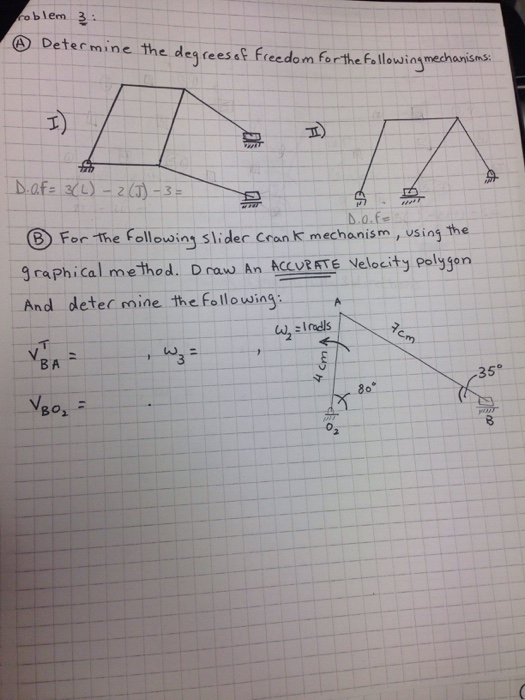 roblem 3:
Ⓐ Determine the degrees of freedom for the following mechanisms:
I)
II)
D.o.f = 3(L) - 2(J) - 3 =
D.o.f =
Ⓑ For The following slider Crank mechanism, using the
graphical method. Draw An ACCURATE Velocity polygon
And determine the following:
A
ω₂ = 1 rad/s
7cm
Vᵀ BA = , ω₃ = ,
4 cm
35°
80°
V BO₂ = .
O₂
B